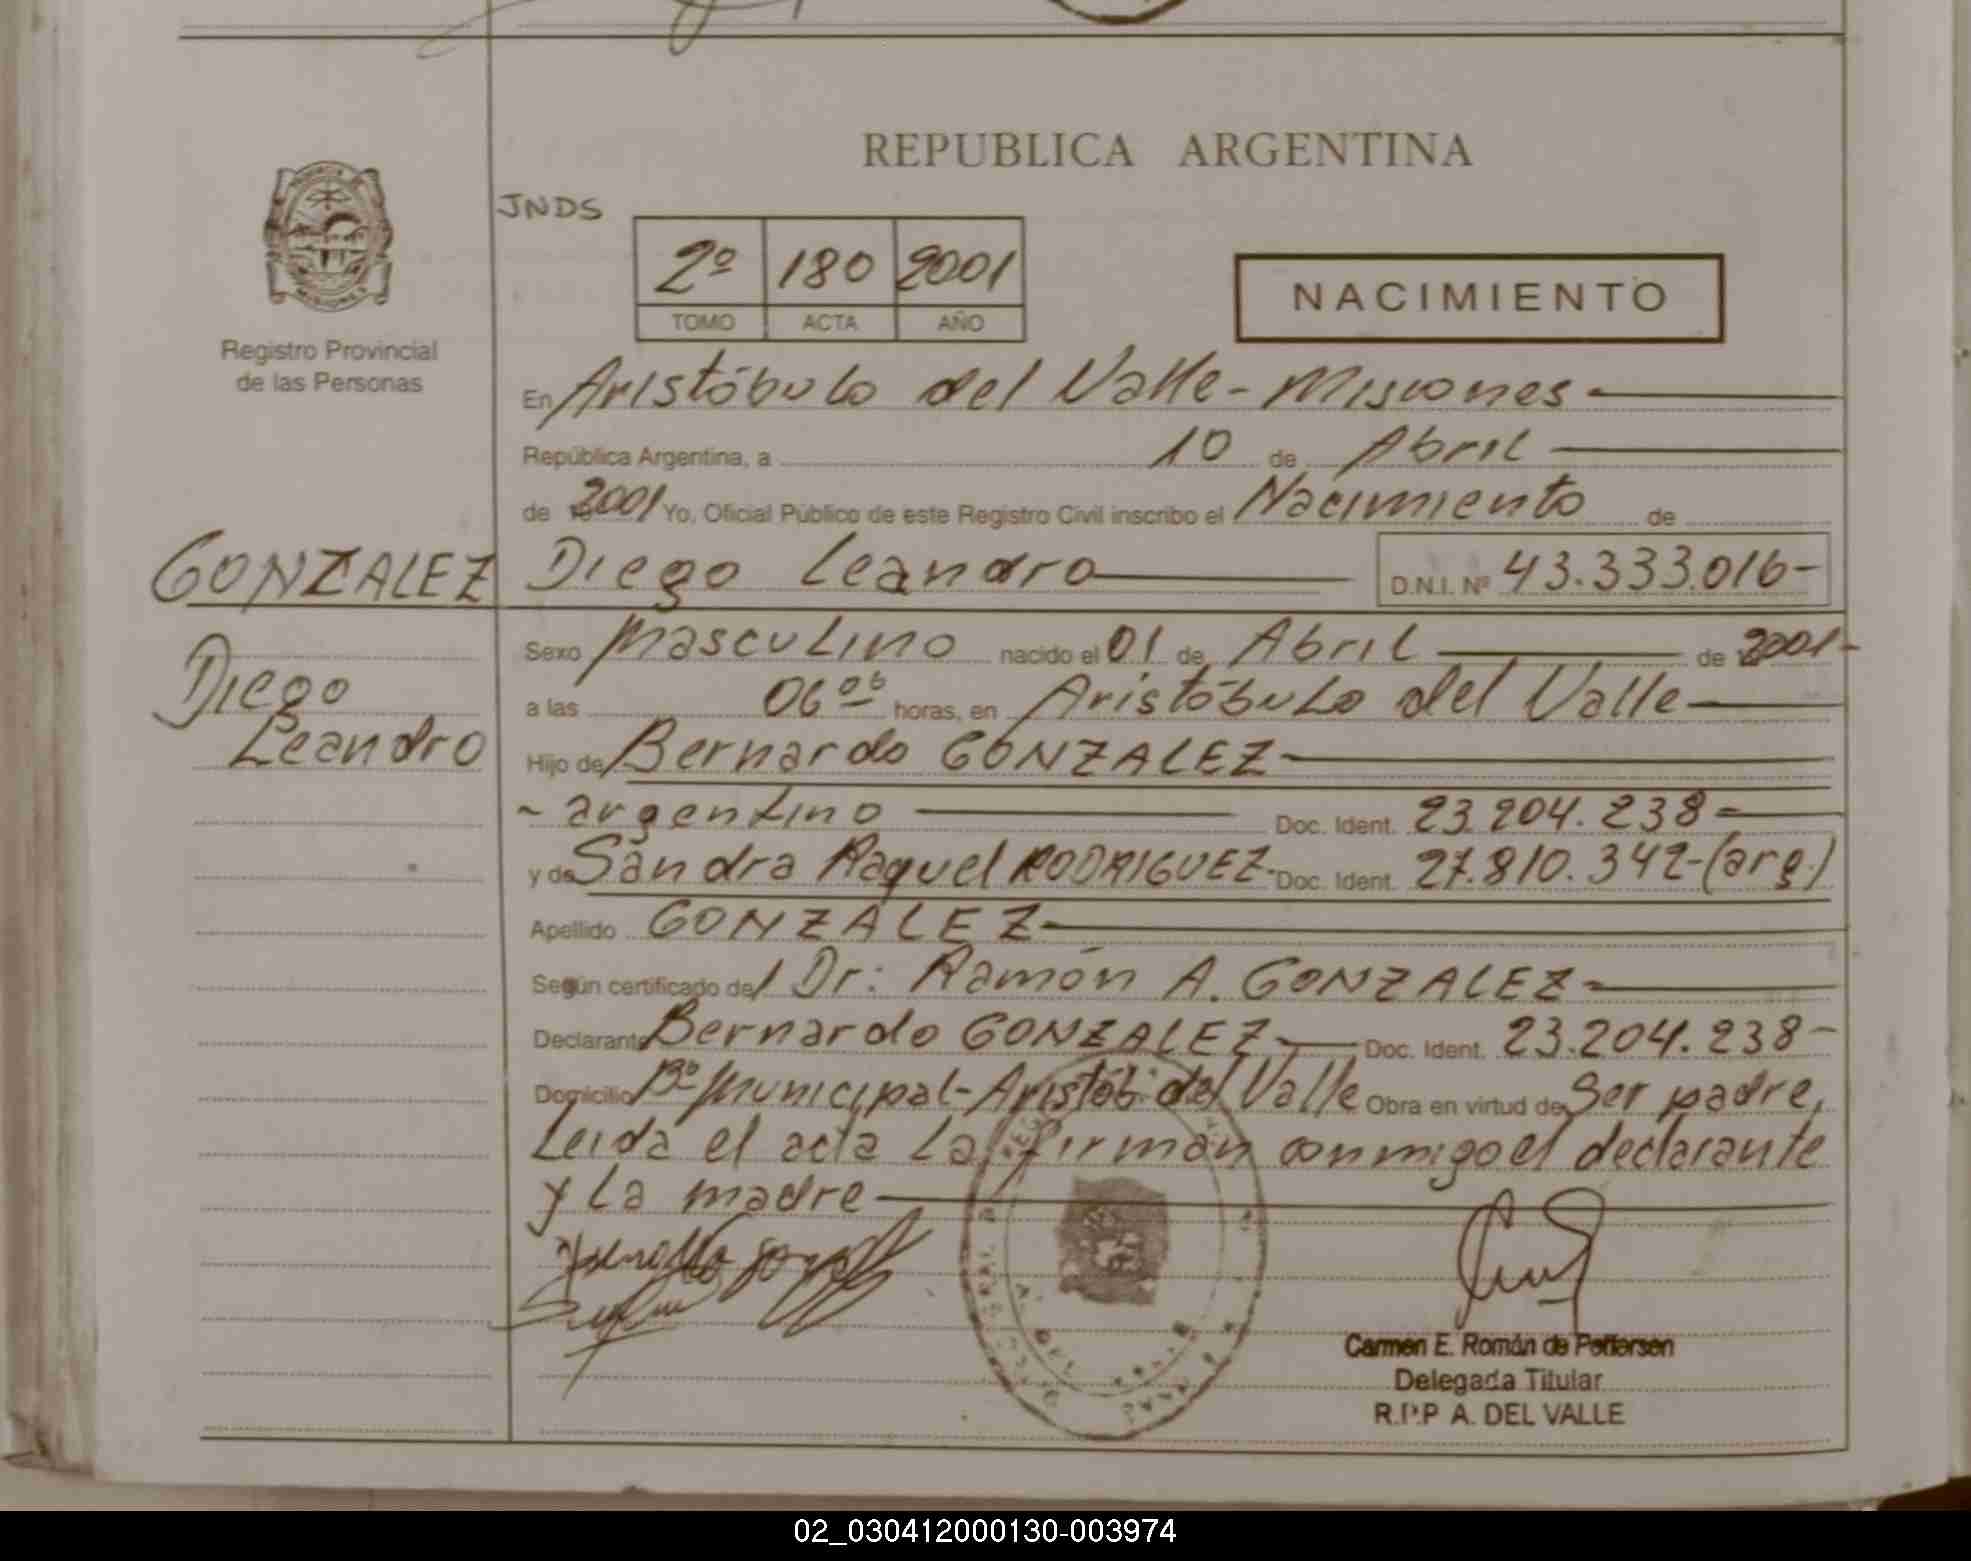 REPUBLICA ARGENTINA
JNDS
2º 180 2001
TOMO ACTA AÑO
NACIMIENTO
Registro Provincial
de las Personas
En Aristóbulo del Valle - Misiones
República Argentina, a 10 de Abril
de 2001 Yo, Oficial Público de este Registro Civil inscribo el Nacimiento de
GONZALEZ Diego Leandro D.N.I. Nº 43.333.016-
Diego
Leandro
Sexo Masculino nacido el 01 de Abril de 2001-
a las 06 horas, en Aristóbulo del Valle
Hijo de Bernardo GONZALEZ
- argentino Doc. Ident. 23.204.238-
y de Sandra Raquel RODRIGUEZ- Doc. Ident. 27.810.342-(arg.)
Apellido GONZALEZ
Según certificado del Dr: Ramón A. GONZALEZ
Declarante Bernardo GONZALEZ Doc. Ident. 23.204.238-
Domicilio Bº Municipal-Aristób. del Valle Obra en virtud de Ser padre,
Leida el acta La firman conmigo el declarante
y La madre
Carmen E. Román de Pettersen
Delegada Titular
R.P.P A. DEL VALLE
02_030412000130-003974